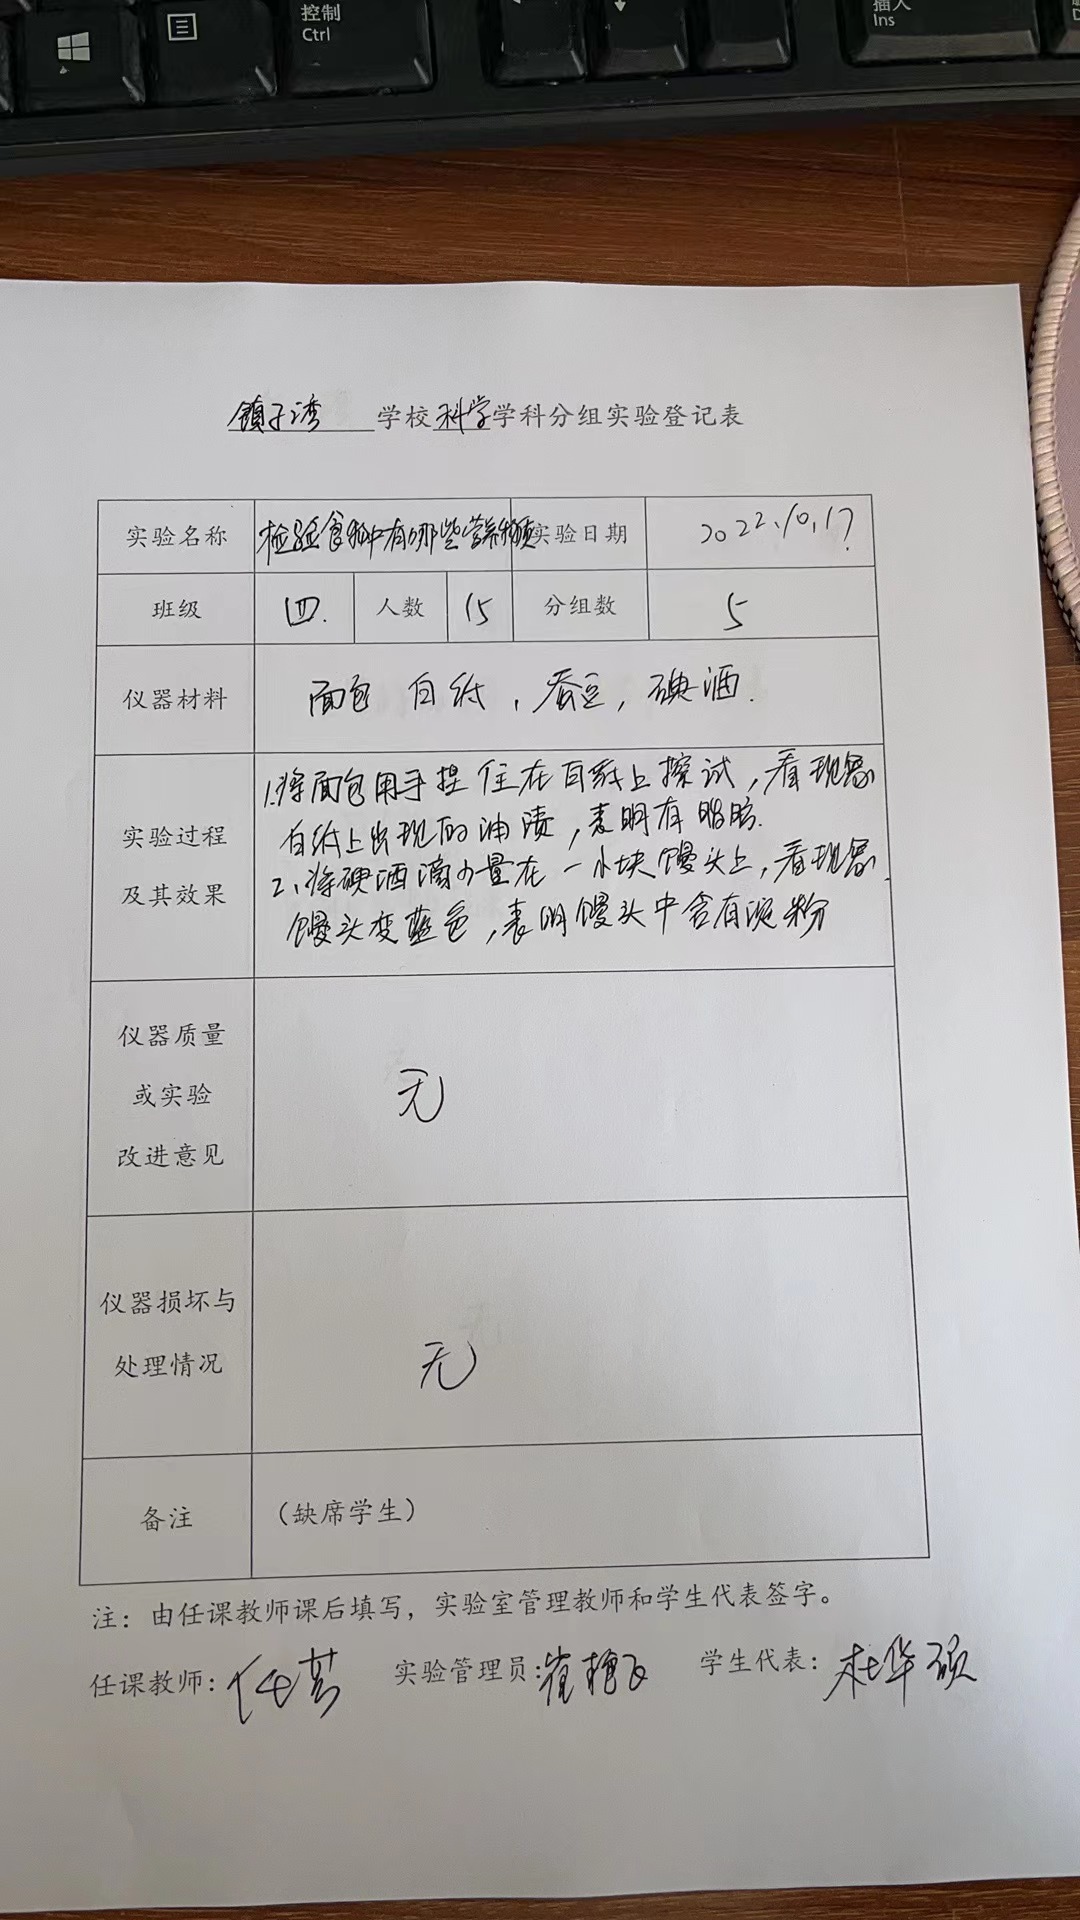 控制
Ctrl
插入
Ins
镇子湾 学校科学学科分组实验登记表
实验名称 检验食物中有哪些营养物质 实验日期 2022.10.17
班级 四. 人数 15 分组数 5
仪器材料 面包 白纸,蚕豆,碘酒.
实验过程
及其效果
1.将面包用手捏住在白纸上擦试,看现象
白纸上出现的油渍,表明有脂肪.
2、将碘酒滴少量在一小块馒头上,看现象.
馒头变蓝色,表明馒头中含有淀粉
仪器质量
或实验
改进意见
无
仪器损坏与
处理情况
无
备注 (缺席学生)
注：由任课教师课后填写，实验室管理教师和学生代表签字。
任课教师: 实验管理员: 学生代表: 杜华硕